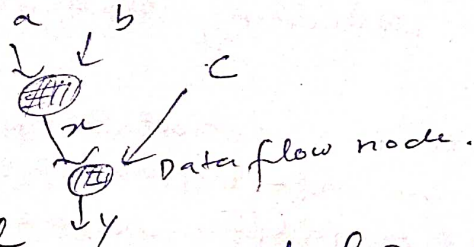 a b
c
x
Data flow node.
y